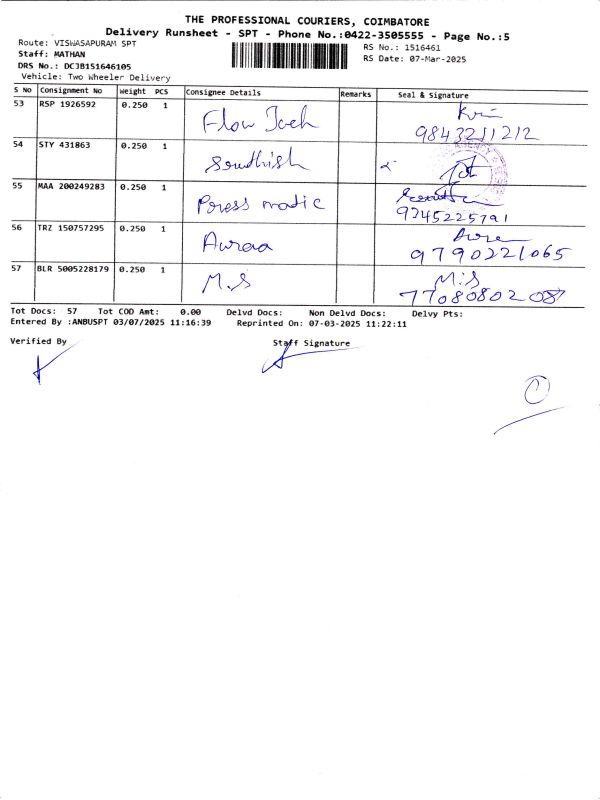 THE PROFESSIONAL COURIERS, COIMBATORE
Delivery Runsheet - SPT - Phone No.:0422-3505555 - Page No.:5
Route: VISWASAPURAM SPT
RS No.: 1516461
Staff: MATHAN
RS Date: 07-Mar-2025
DRS No.: DCJB151646105
Vehicle: Two Wheeler Delivery
S No Consignment No Weight PCS Consignee Details Remarks Seal & Signature
53 RSP 1926592 0.250 1 Flow Tech
9843211212
54 STY 431863 0.250 1
55 MAA 200249283 0.250 1 Press matic
9245225791
56 TRZ 150757295 0.250 1 Auraa
9790221065
57 BLR 5005228179 0.250 1 M.S M.S
7708080208
Tot Docs: 57 Tot COD Amt: 0.00 Delvd Docs: Non Delvd Docs: Delvy Pts:
Entered By :ANBUSPT 03/07/2025 11:16:39 Reprinted On: 07-03-2025 11:22:11
Verified By Staff Signature